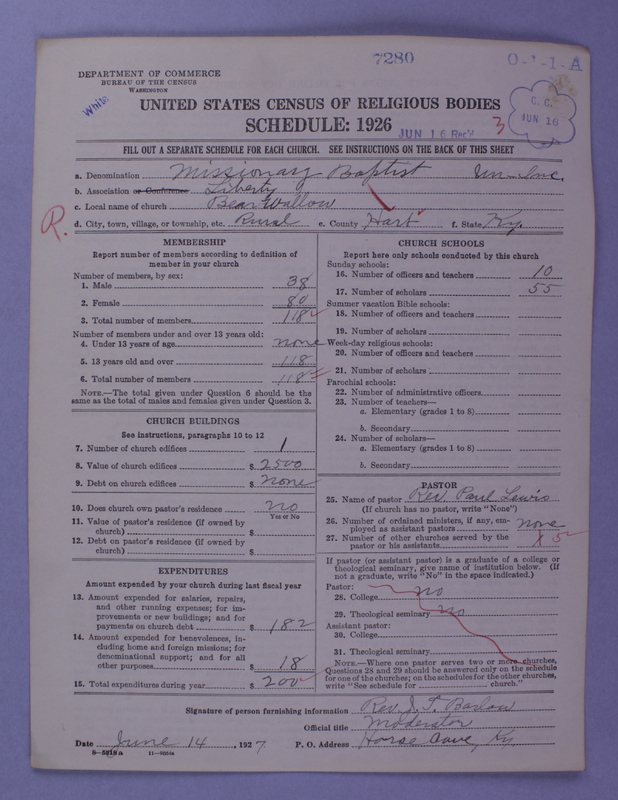 7280
0-1-1-A
DEPARTMENT OF COMMERCE
BUREAU OF THE CENSUS
WASHINGTON
White
UNITED STATES CENSUS OF RELIGIOUS BODIES
SCHEDULE: 1926
JUN 16 Rec'd
3
C. C.
JUN 16
FILL OUT A SEPARATE SCHEDULE FOR EACH CHURCH. SEE INSTRUCTIONS ON THE BACK OF THIS SHEET
a. Denomination Missionary Baptist Un-Inc.
b. Association or Conference Liberty
c. Local name of church Bear Wallow
R.
d. City, town, village, or township, etc. Rural e. County Hart f. State Ky.
MEMBERSHIP
Report number of members according to definition of
member in your church
Number of members, by sex:
1. Male 38
2. Female 80
3. Total number of members 118
Number of members under and over 13 years old:
4. Under 13 years of age none
5. 13 years old and over 118
6. Total number of members 118
NOTE.—The total given under Question 6 should be the
same as the total of males and females given under Question 3.
CHURCH BUILDINGS
See instructions, paragraphs 10 to 12
7. Number of church edifices 1
8. Value of church edifices $ 2500
9. Debt on church edifices $ none
10. Does church own pastor's residence no
Yes or No
11. Value of pastor's residence (if owned by
church) $
12. Debt on pastor's residence (if owned by
church) $
EXPENDITURES
Amount expended by your church during last fiscal year
13. Amount expended for salaries, repairs,
and other running expenses; for im-
provements or new buildings; and for
payments on church debt $ 182
14. Amount expended for benevolences, in-
cluding home and foreign missions; for
denominational support; and for all
other purposes $ 18
15. Total expenditures during year $ 200
CHURCH SCHOOLS
Report here only schools conducted by this church
Sunday schools:
16. Number of officers and teachers 10
17. Number of scholars 55
Summer vacation Bible schools:
18. Number of officers and teachers
19. Number of scholars
Week-day religious schools:
20. Number of officers and teachers
21. Number of scholars
Parochial schools:
22. Number of administrative officers
23. Number of teachers—
a. Elementary (grades 1 to 8)
b. Secondary
24. Number of scholars—
a. Elementary (grades 1 to 8)
b. Secondary
PASTOR
25. Name of pastor Rev. Paul Lewis
(If church has no pastor, write "None")
26. Number of ordained ministers, if any, em-
ployed as assistant pastors none
27. Number of other churches served by the
pastor or his assistants X 5
If pastor (or assistant pastor) is a graduate of a college or
theological seminary, give name of institution below. (If
not a graduate, write "No" in the space indicated.)
Pastor:
28. College no
29. Theological seminary no
Assistant pastor:
30. College
31. Theological seminary
NOTE.—Where one pastor serves two or more churches,
Questions 28 and 29 should be answered only on the schedule
for one of the churches; on the schedules for the other churches,
write "See schedule for church."
Signature of person furnishing information Rev. J. T. Barlow
Official title Moderator
Date June 14, 1927 P. O. Address Horse Cave, Ky.